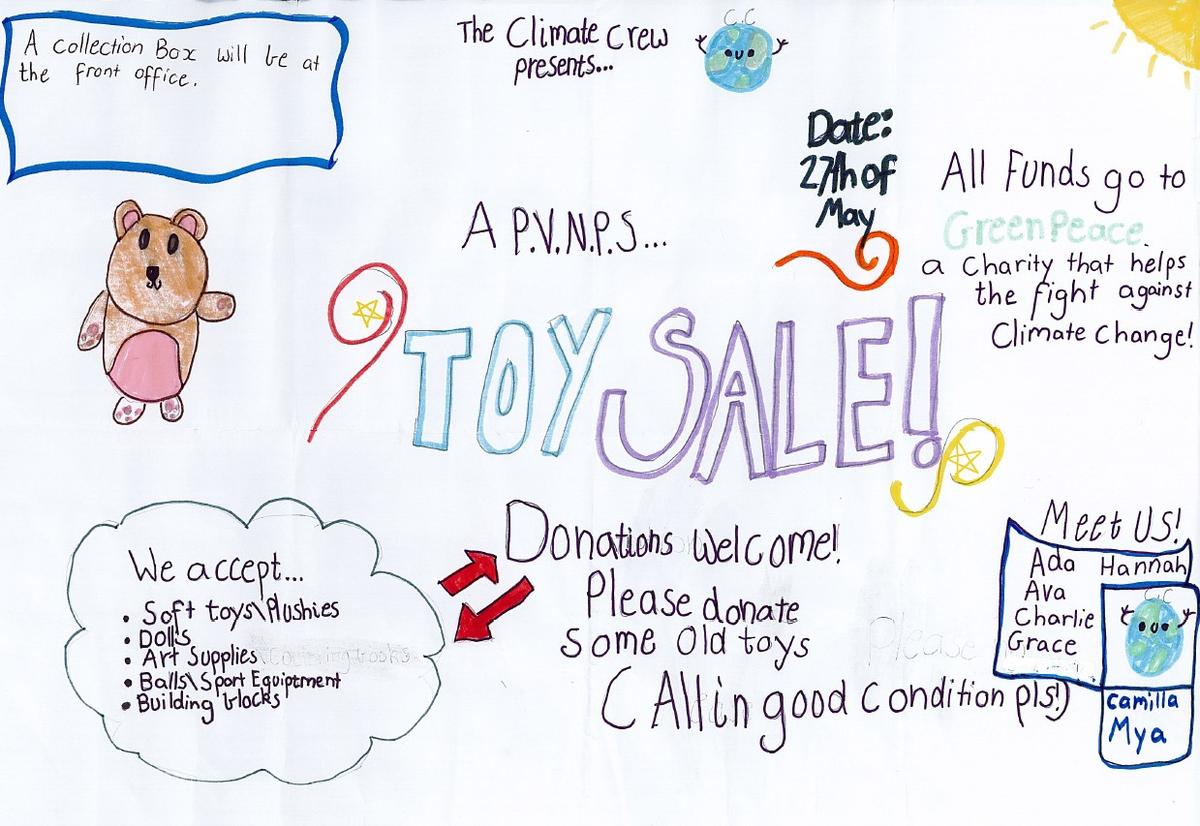 A collection Box will be at
the front office.
The Climate Crew
presents...
C.C
Date:
27th of
May
All Funds go to
GreenPeace
a Charity that helps
the fight against
Climate Change!
A P.V.N.P.S...
TOY SALE!
We accept...
• Soft toys\Plushies
• Dolls
• Art Supplies\Colouring books
• Balls\Sport Equiptment
• Building blocks
Donations Welcome!
Please donate
some old toys
Please
( All in good Condition pls!)
Meet US!
Ada Hannah
Ava
Charlie
Grace
C.C
Camilla
Mya